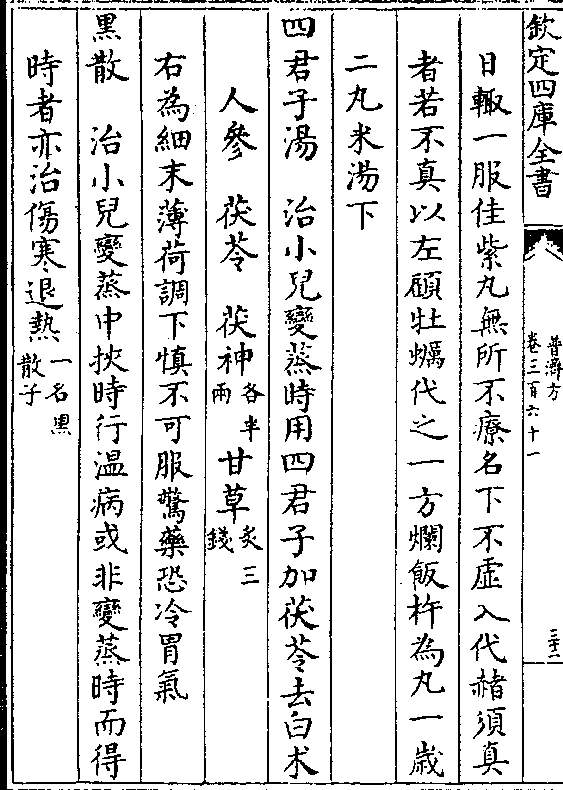 欽定四庫全書
普濟方
卷三百六十一
三十二
日輙一服佳紫丸無所不療名下不虛入代赭須真
者若不真以左顧牡蠣代之一方爛飯杵為丸一嵗
二丸米湯下
四君子湯　治小兒變蒸時用四君子加茯苓去白术
人參　茯苓　茯神各半兩甘草炙三錢
右為細末薄荷調下慎不可服驚藥恐冷胃氣
黑散　治小兒變蒸中挾時行温病或非變蒸時而得
時者亦治傷寒退熱一名黑散子